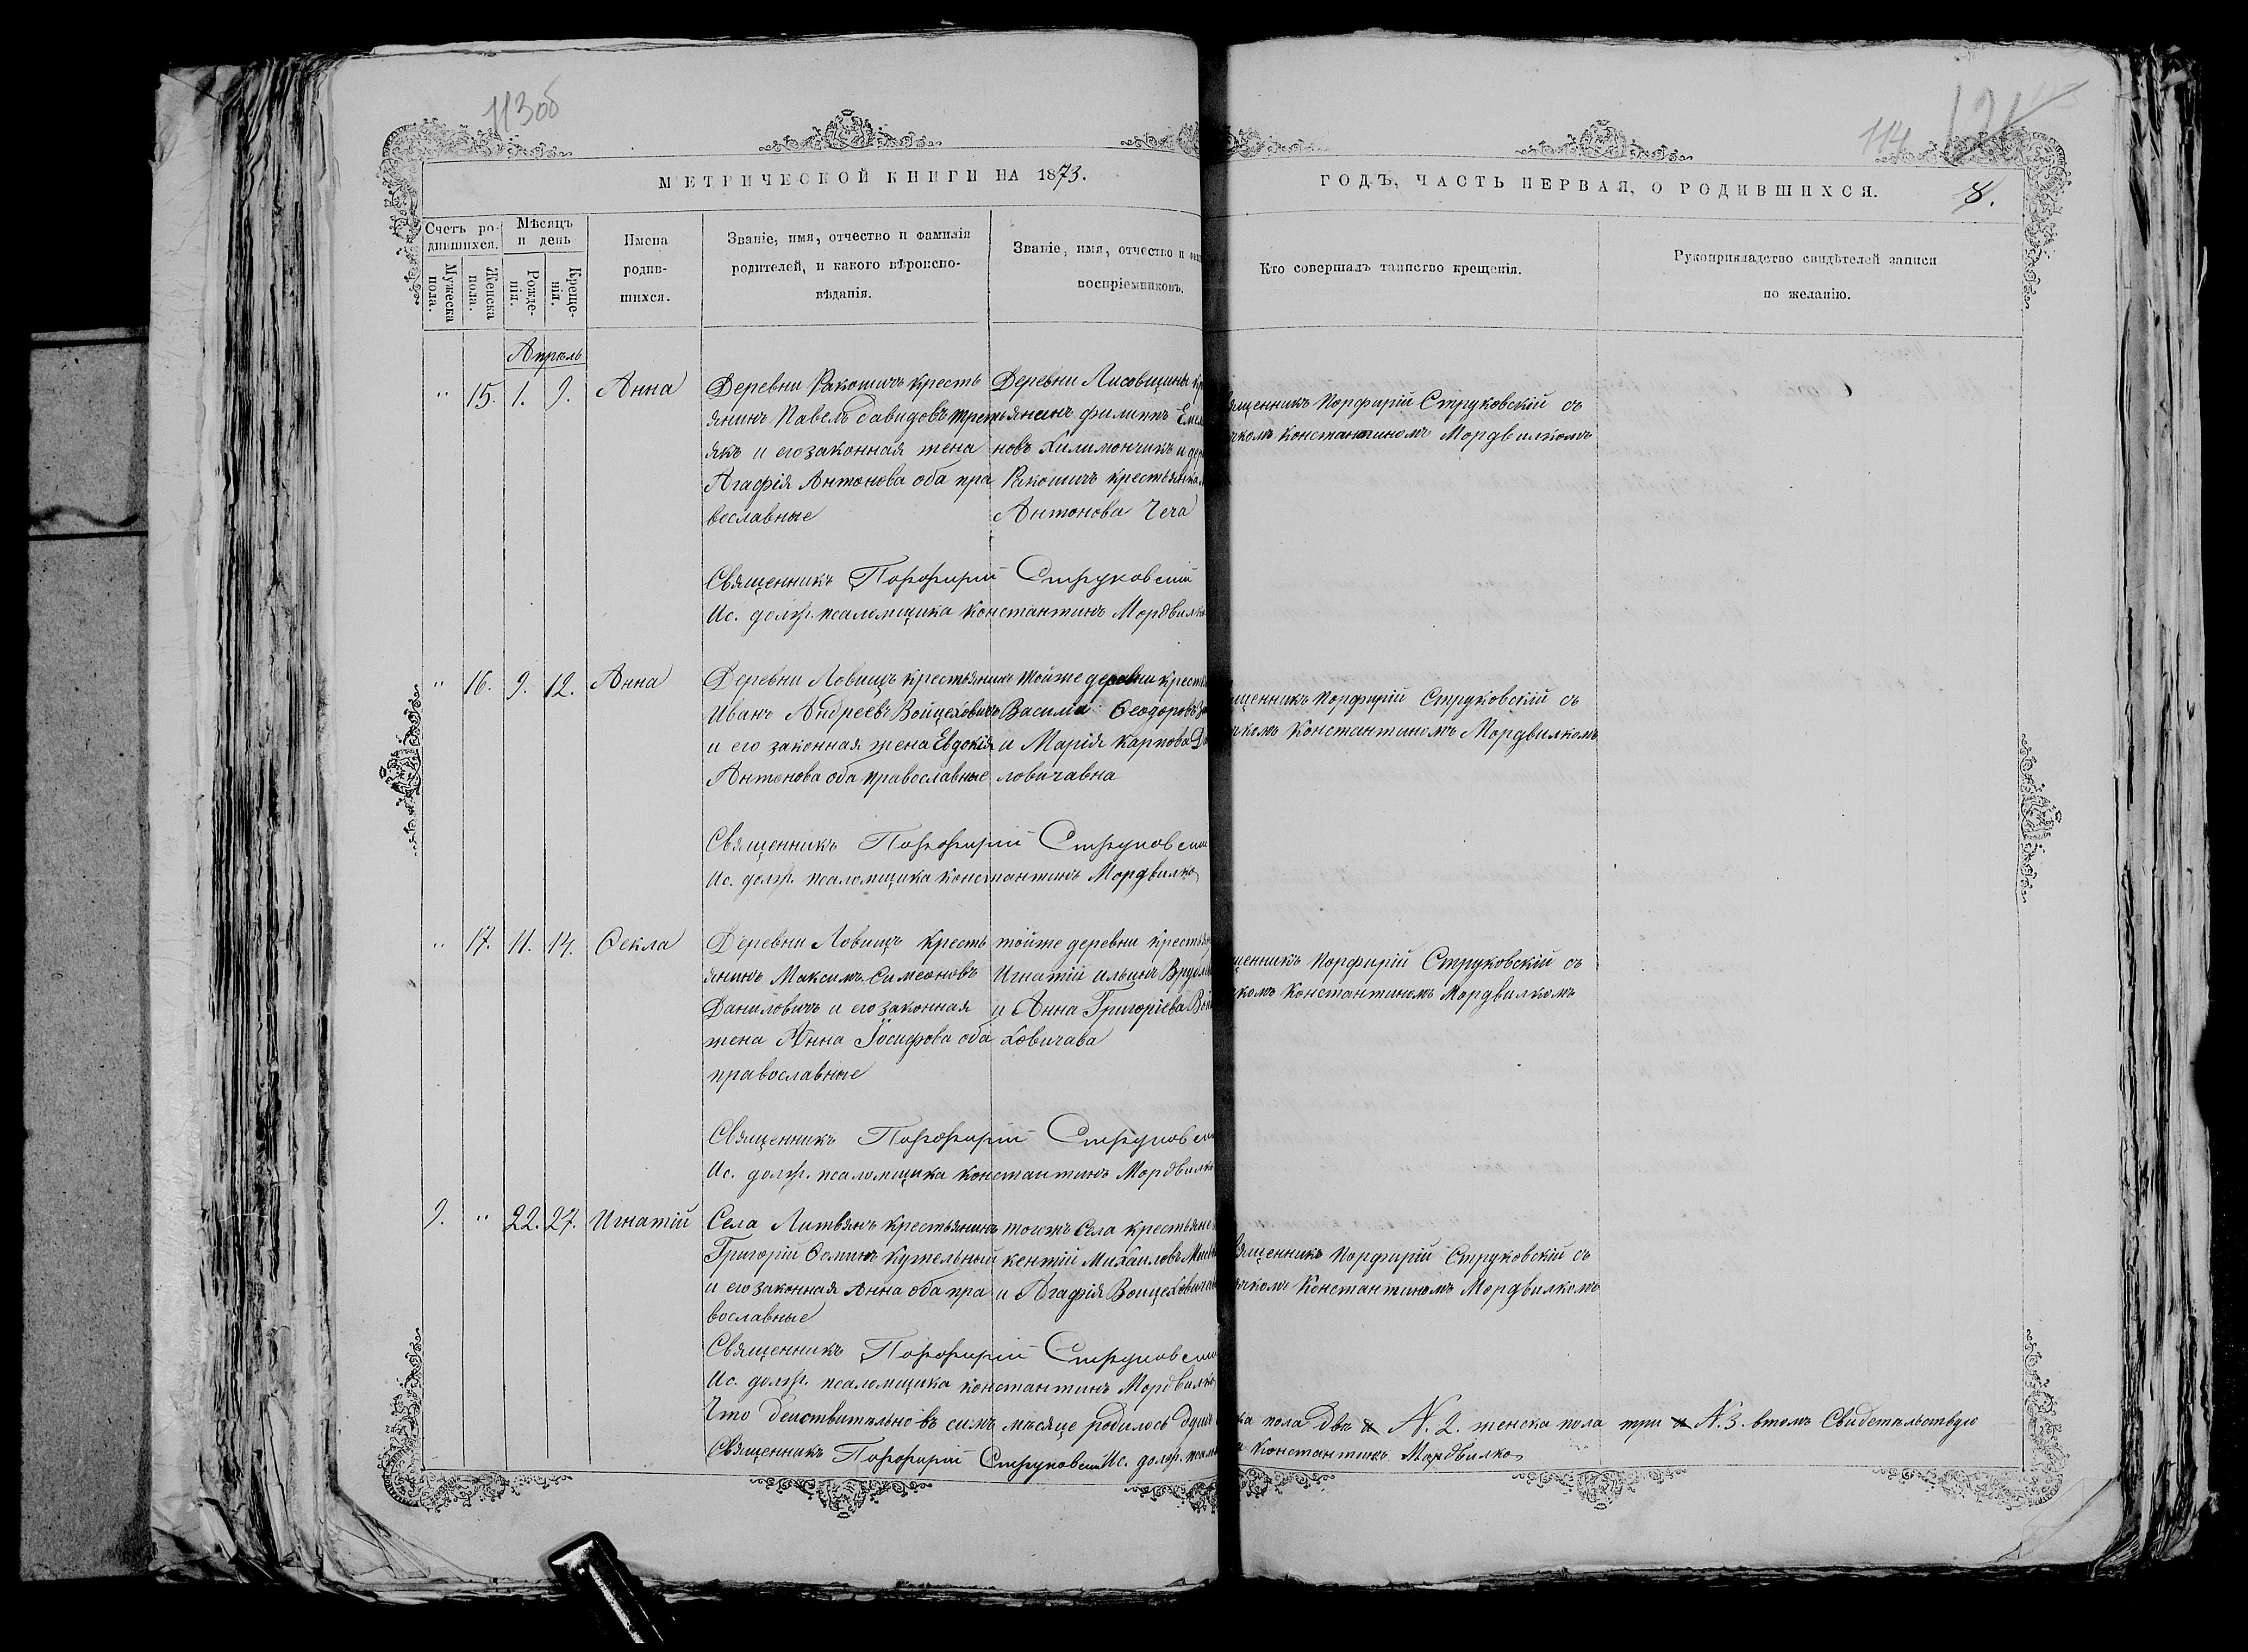 113об
114
121
МЕТРИЧЕСКОЙ КНИГИ НА 1873.
ГОДЪ, ЧАСТЬ ПЕРВАЯ, О РОДИВШИХСЯ.
8.
Счетъ ро-
дившихся.
Мужеска пола.
Женска пола.
Мѣсяцъ
и день
Рожде-
нія.
Креще-
нія.
Имена
родив-
шихся.
Званіе, имя, отчество и фамилія
родителей, и какого вѣроиспо-
вѣданія.
Званіе, имя, отчество и
воспріемниковъ.
Кто совершалъ таинство крещенія.
Рукоприкладство свидѣтелей записи
по желанію.
Апрѣль
" 15. 1. 9. Анна
Деревни Ракошичъ кресть
янинъ Павелъ Давидовъ Треть
якъ и его законная жена
Агафія Антонова оба пра
вославные
Деревни Лисовщины кр
янинъ Филиппъ Емел
новъ Хилимончикъ и дер
Ракошичъ крестьянка
Антонова Чеча
ященникъ Порфирій Струковскій съ
чкомъ Константиномъ Мордвилкомъ
Священникъ Порфирій Струковскій
Ис. долж. псаломщика Константинъ Мордвилко
" 16. 9. 12. Анна
Деревни Ловищъ крестьянинъ
Иванъ Андреевъ Войцеховичъ
и его законная жена Евдокія
Антонова оба православные
тойже деревни крест
Василій Ѳеодоровъ
и Марія Карпова Да
ловичавна
щенникъ Порфирій Струковскій съ
чкомъ Константиномъ Мордвилкомъ
Священникъ Порфирій Струковскій
Ис. долж. псаломщика Константинъ Мордвилко
" 17. 11. 14. Ѳекла
Деревни Ловищъ кресть
янинъ Максимъ Симеоновъ
Даниловичъ и его законная
жена Анна Іосифова оба
православные
тойже деревни крестья
Игнатій Ильинъ Врубл
и Анна Григоріева Вой
ховичава
щенникъ Порфирій Струковскій съ
чкомъ Константиномъ Мордвилкомъ
Священникъ Порфирій Струковскій
Ис. долж. псаломщика Константинъ Мордвилко
9. " 22. 27. Игнатій
Села Литвянъ крестьянинъ
Григорій Ѳоминъ Кужельный
и его законная Анна оба пра
вославные
тогожъ Села крестьяне
кентій Михаиловъ
и Агафія Воицеховичав
ященникъ Порфирій Струковскій съ
чкомъ Константиномъ Мордвилкомъ
Священникъ Порфирій Струковскій
Ис. долж. псаломщика Константинъ Мордвилко
Что дѣиствительно въ семъ мѣсяце родилось душъ ка пола двѣ N. 2. женска пола три N. 3. втомъ Свидетельствую
Священникъ Порфирій Струковскій Ис. долж. псалом а Константинъ Мордвилко